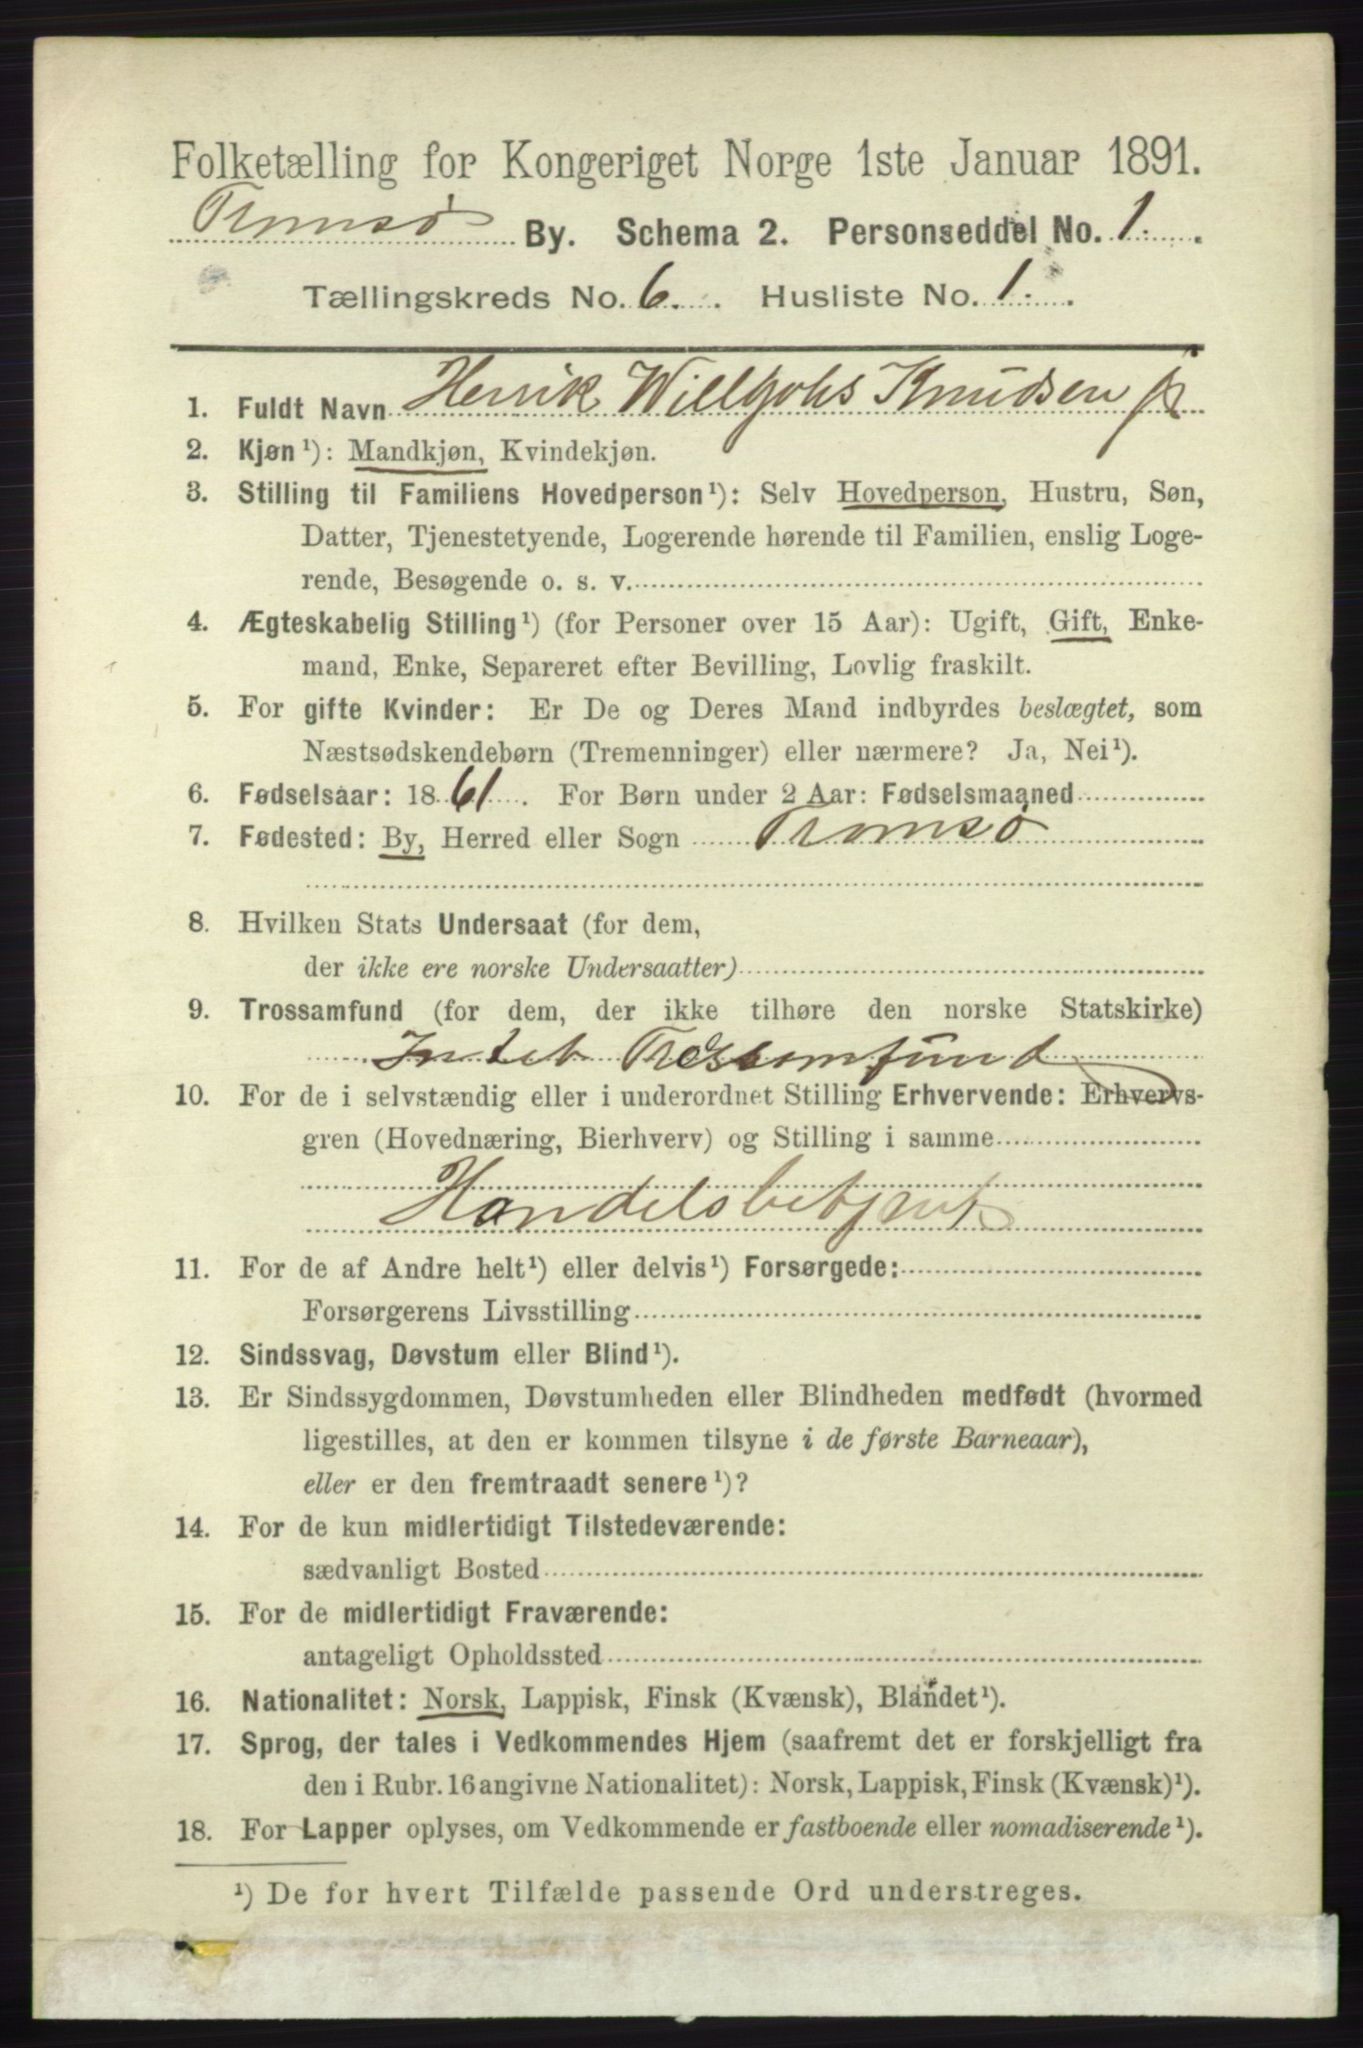 Folketælling for Kongeriget Norge 1ste Januar 1891.
Tromsø By. Schema 2. Personseddel No. 1.
Tællingskreds No. 6. Husliste No. 1.
1. Fuldt Navn Henrik Willhohs Knudsen jr
2. Kjøn¹): Mandkjøn, Kvindekjøn.
3. Stilling til Familiens Hovedperson¹): Selv Hovedperson, Hustru, Søn,
Datter, Tjenestetyende, Logerende hørende til Familien, enslig Loge-
rende, Besøgende o. s. v.
4. Ægteskabelig Stilling¹) (for Personer over 15 Aar): Ugift, Gift, Enke-
mand, Enke, Separeret efter Bevilling, Lovlig fraskilt.
5. For gifte Kvinder: Er De og Deres Mand indbyrdes beslægtet, som
Næstsødskendebørn (Tremenninger) eller nærmere? Ja, Nei¹).
6. Fødselsaar: 1861. For Børn under 2 Aar: Fødselsmaaned
7. Fødested: By, Herred eller Sogn Tromsø
8. Hvilken Stats Undersaat (for dem,
der ikke ere norske Undersaatter)
9. Trossamfund (for dem, der ikke tilhøre den norske Statskirke)
Intet Trossamfund
10. For de i selvstændig eller i underordnet Stilling Erhvervende: Erhvervs-
gren (Hovednæring, Bierhverv) og Stilling i samme
Handelsbetjent
11. For de af Andre helt¹) eller delvis¹) Forsørgede:
Forsørgerens Livsstilling
12. Sindssvag, Døvstum eller Blind¹).
13. Er Sindssygdommen, Døvstumheden eller Blindheden medfødt (hvormed
ligestilles, at den er kommen tilsyne i de første Barneaar),
eller er den fremtraadt senere¹)?
14. For de kun midlertidigt Tilstedeværende:
sædvanligt Bosted
15. For de midlertidigt Fraværende:
antageligt Opholdssted
16. Nationalitet: Norsk, Lappisk, Finsk (Kvænsk), Blandet¹).
17. Sprog, der tales i Vedkommendes Hjem (saafremt det er forskjelligt fra
den i Rubr. 16 angivne Nationalitet): Norsk, Lappisk, Finsk (Kvænsk)¹).
18. For Lapper oplyses, om Vedkommende er fastboende eller nomadiserende¹).
¹) De for hvert Tilfælde passende Ord understreges.